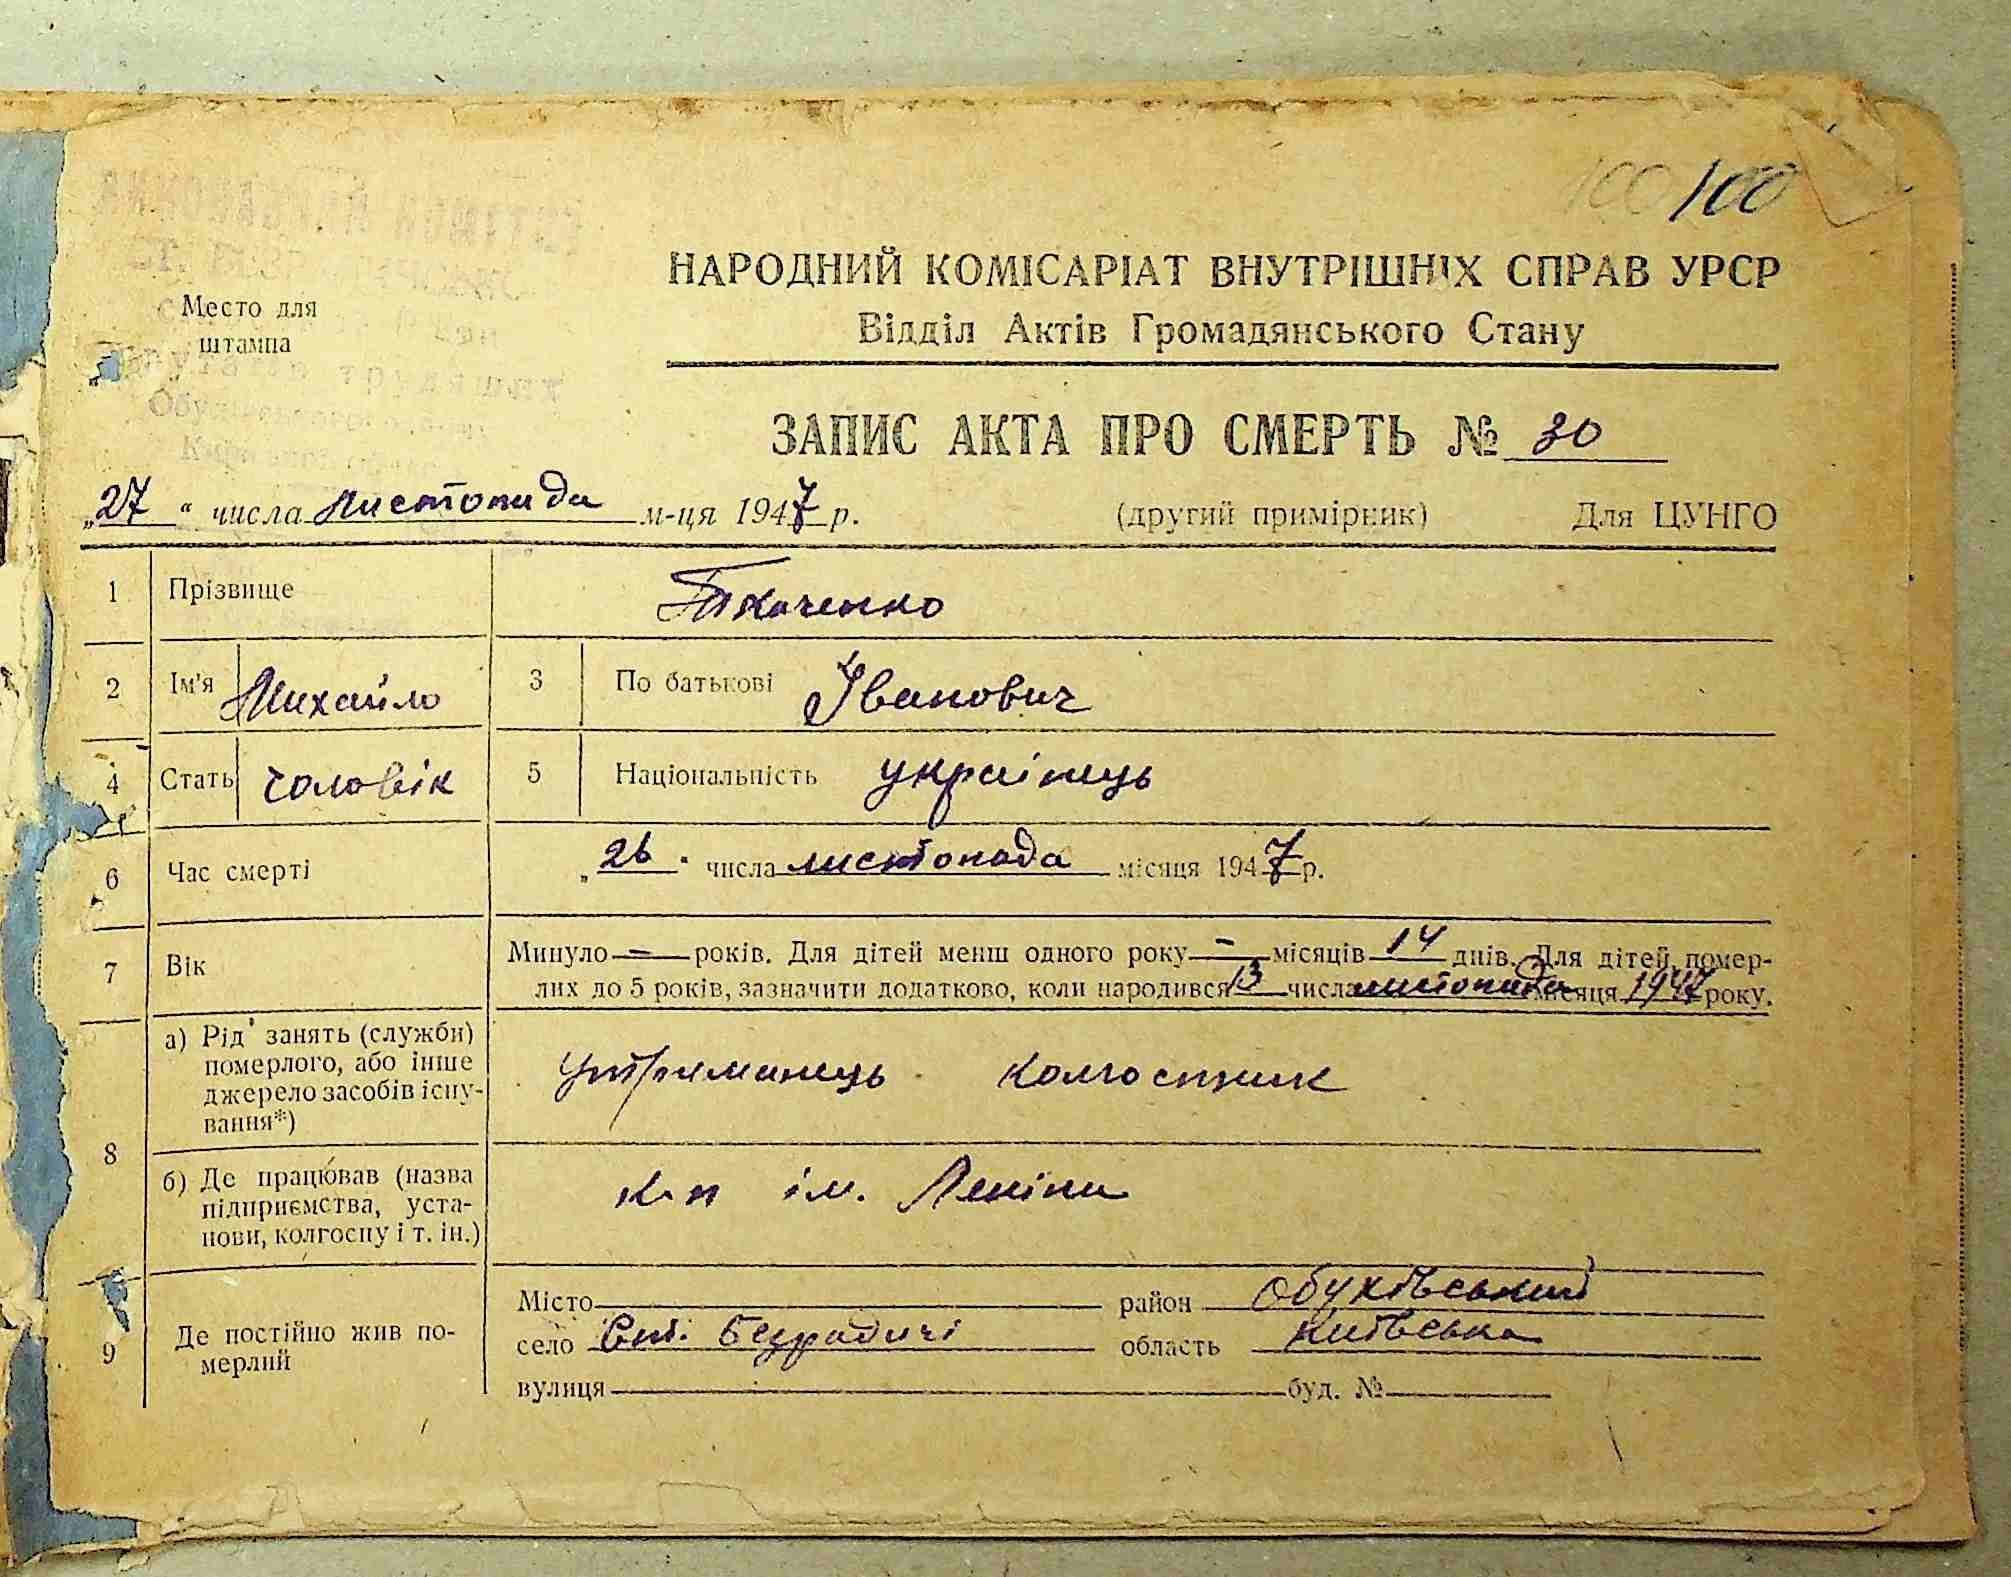 100 100
НАРОДНИЙ КОМІСАРІАТ ВНУТРІШНІХ СПРАВ УРСР
Відділ Актів Громадянського Стану
Место для
штампа
ЗАПИС АКТА ПРО СМЕРТЬ № 30
„27“ числа листопада м-ця 1947 р. (другий примірник) Для ЦУНГО
1 Прізвище Ткаченко
2 Ім'я Михайло 3 По батькові Іванович
4 Стать чоловік 5 Національність українець
6 Час смерті „26" числа листопада місяця 1947 р.
7 Вік Минуло — років. Для дітей менш одного року — місяців 14 днів. Для дітей, помер-
лих до 5 років, зазначити додатково, коли народився 13 числа листопада місяця 1947 року.
8 а) Рід занять (служби)
померлого, або інше
джерело засобів існу-
вання*)
утриманець колгоспник
б) Де працював (назва
підприємства, уста-
нови, колгоспу і т. ін.)
к-п ім. Леніна
9 Де постійно жив по-
мерлий
Місто — район Обухівський
село Вел. Безрадичі область Київська
вулиця — буд. № —